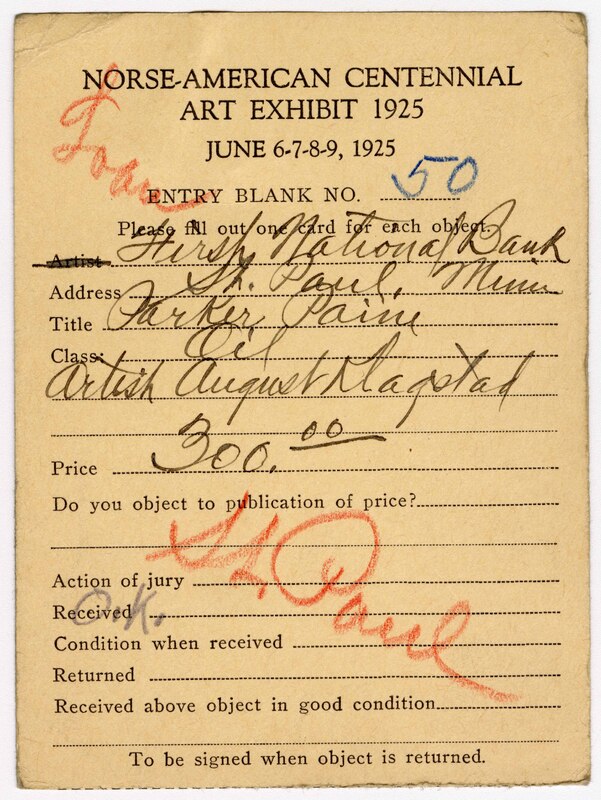 NORSE-AMERICAN CENTENNIAL
ART EXHIBIT 1925
JUNE 6-7-8-9, 1925
Loan
ENTRY BLANK NO. 50
Please fill out one card for each object.
Artist First National Bank
Address St. Paul, Minn
Title Parker Paine
Class: Oil
Artist August Klagstad
Price 300.00
Do you object to publication of price?
St. Paul
Action of jury
Received O.K.
Condition when received
Returned
Received above object in good condition
To be signed when object is returned.